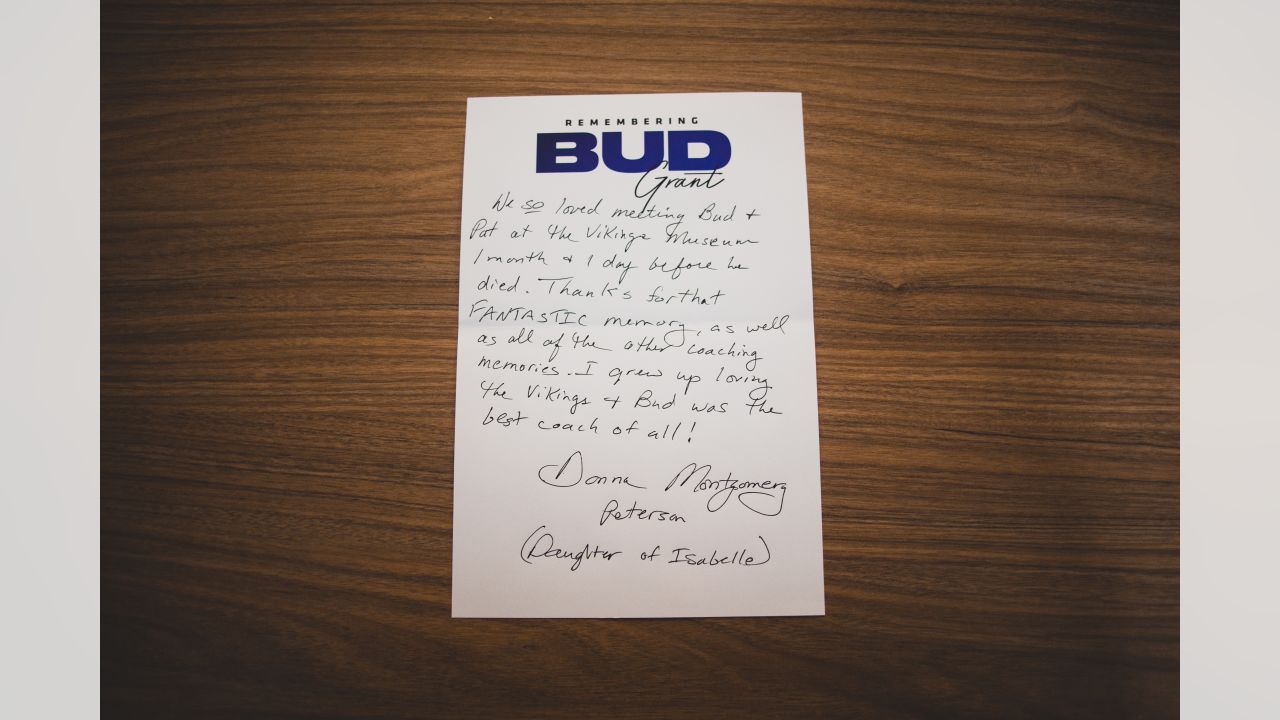 REMEMBERING
BUD
Grant
We so loved meeting Bud +
Pat at the Vikings Museum
1 month + 1 day before he
died. Thanks for that
FANTASTIC memory, as well
as all of the other coaching
memories. I grew up loving
the Vikings + Bud was the
best coach of all!
Donna Montgomery
Peterson
(Daughter of Isabelle)